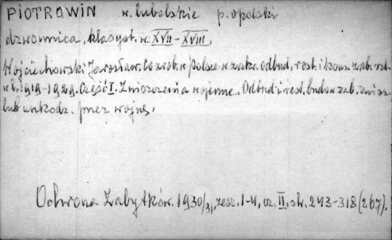 PIOTROWIN w. lubelskie p. opolski
dzwonnica, klasyst. w. XVII-XVIII,
Wojciechowski Jarosław. Co zrob. w Polsce w zakr. odbud., rest. i konserw. zab. szt.
w l. 1919-1929. Część I. Zniszczenia wojenne. Odbud. i rest. budow. zab. znisz.
lub uszkodz. przez wojnę,
Ochrona Zabytków. 1930/31, zesz. 1-4, cz. II, str. 243-318 (267).